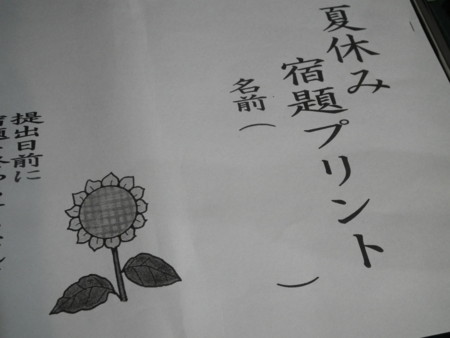 夏休み
宿題プリント
名前（　　　）
提出日前に